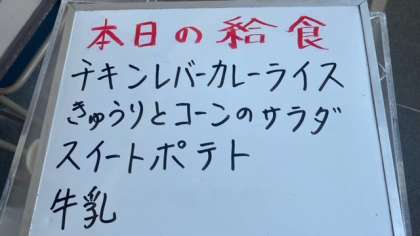 本日の給食
チキンレバーカレーライス
きゅうりとコーンのサラダ
スイートポテト
牛乳